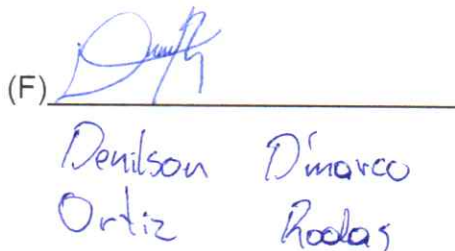 (F)
Denilson D'marco
Ortiz Rodas